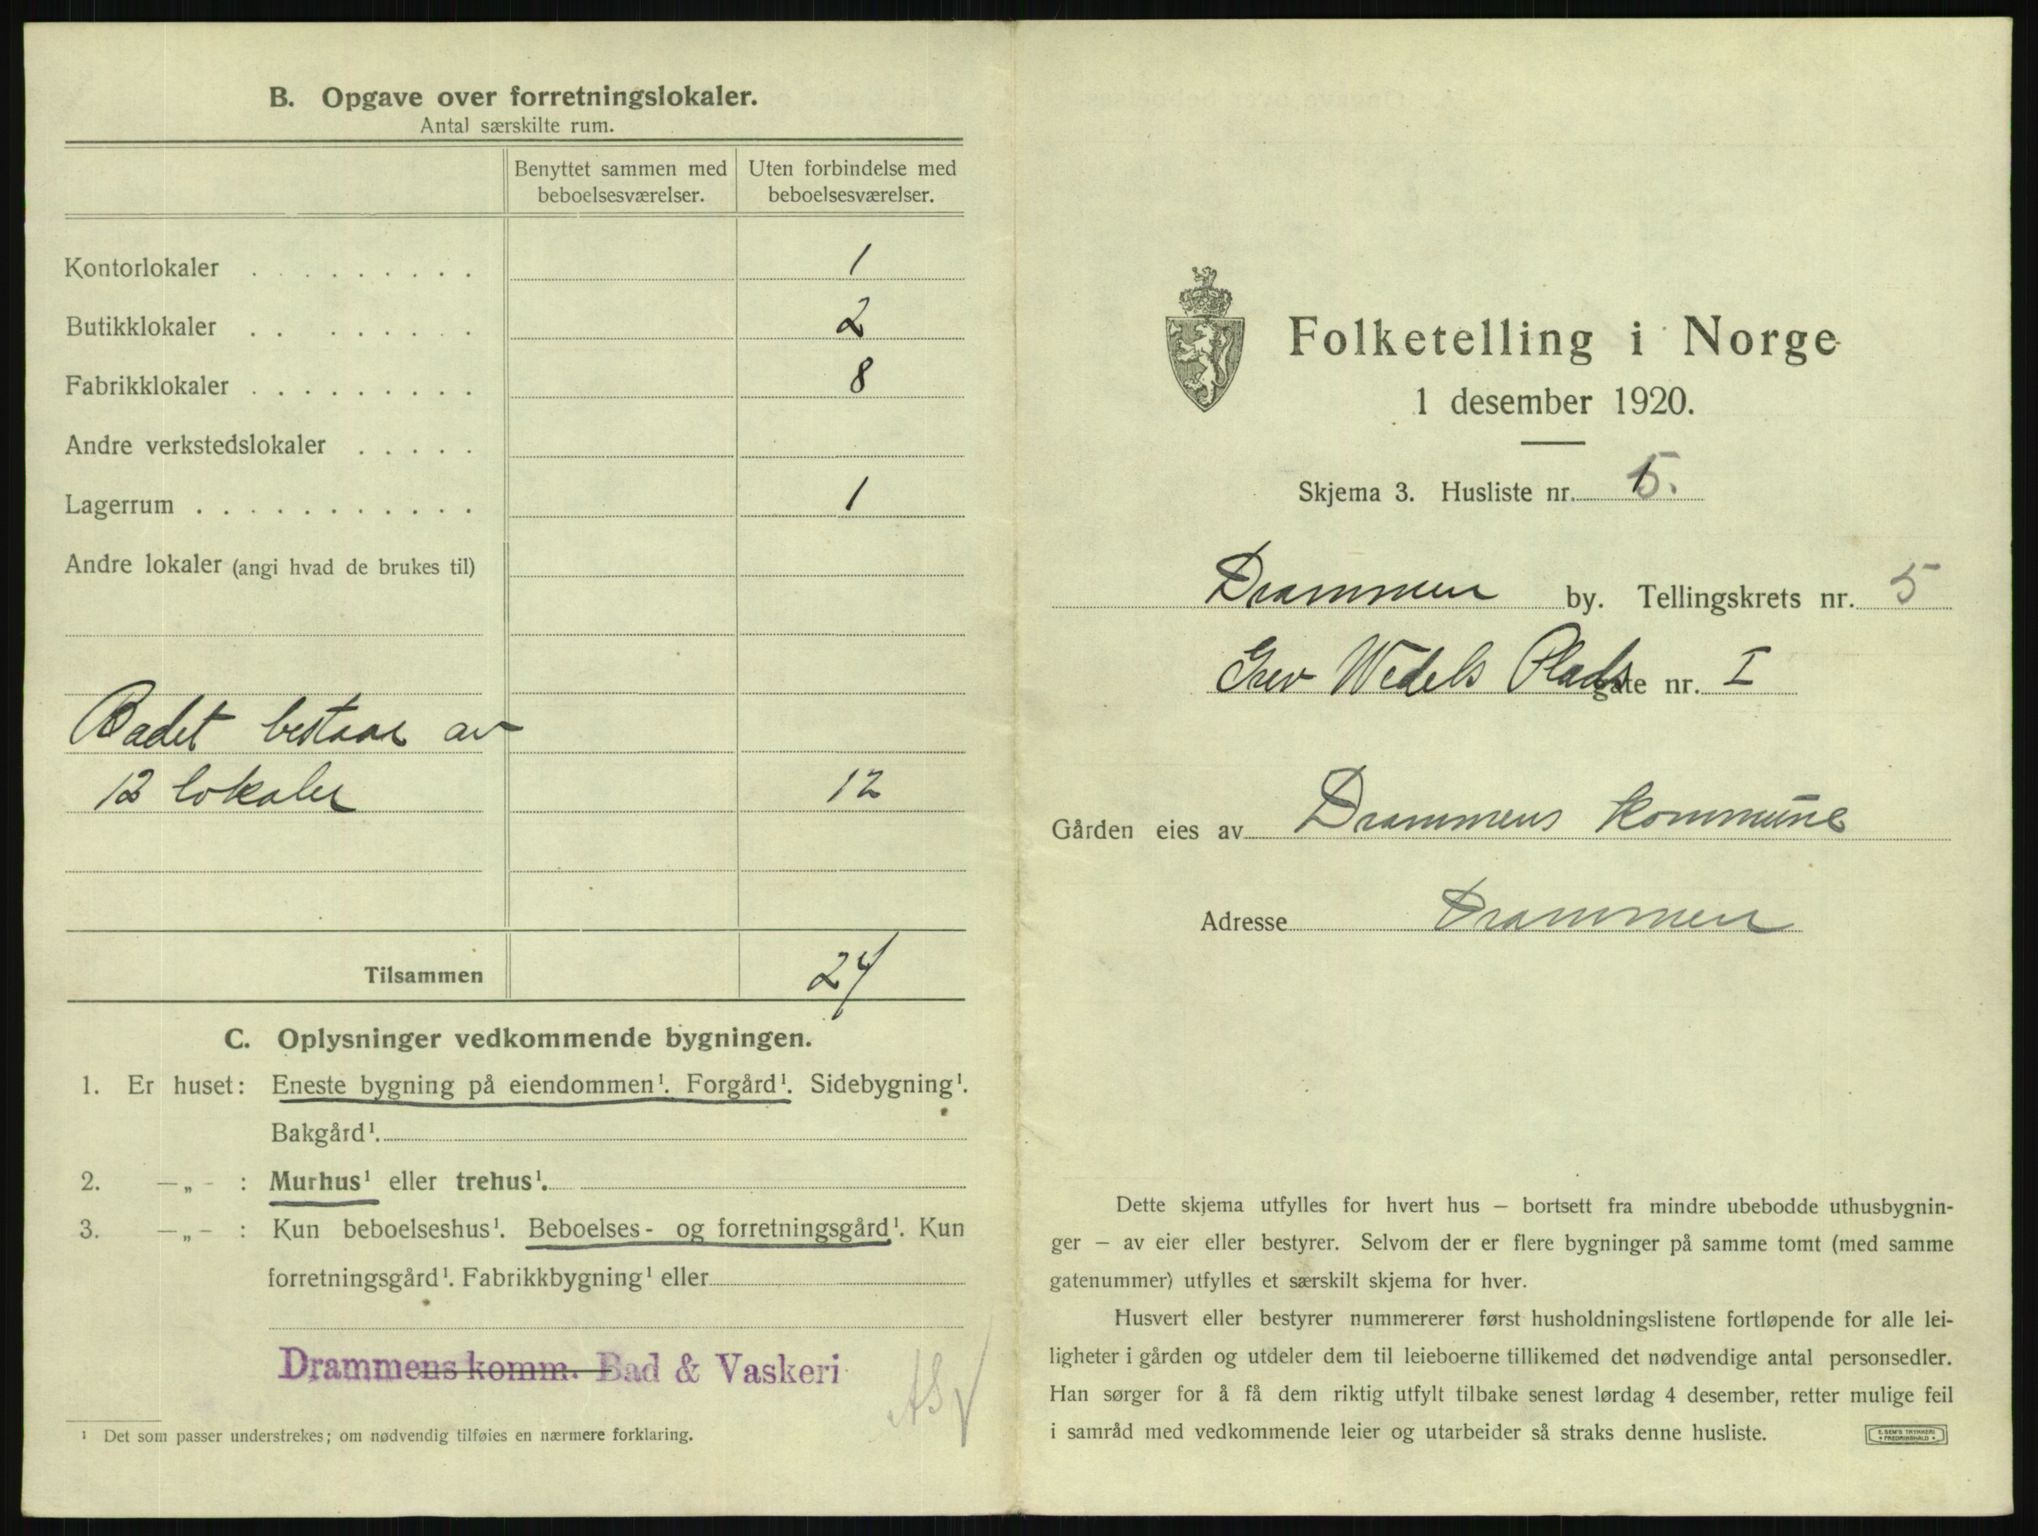 B. Opgave over forretningslokaler.
Antal særskilte rum.
Benyttet sammen med beboelsesværelser.
Uten forbindelse med beboelsesværelser.
Kontorlokaler . . . . . . . . . 1
Butikklokaler . . . . . . . . 2
Fabrikklokaler . . . . . . . . . 8
Andre verkstedslokaler . . . . .
Lagerrum . . . . . . . . . . . 1
Andre lokaler (angi hvad de brukes til)
Badet bestaar av
12 lokaler 12
Tilsammen 24
C. Oplysninger vedkommende bygningen.
1. Er huset: Eneste bygning på eiendommen¹. Forgård¹. Sidebygning¹.
Bakgård¹.
2. —„- : Murhus¹ eller trehus¹.
3. —„- : Kun beboelseshus¹. Beboelses- og forretningsgård¹. Kun
forretningsgård¹. Fabrikkbygning¹ eller
Drammens komm. Bad & Vaskeri
¹ Det som passer understrekes; om nødvendig tilføies en nærmere forklaring.
Folketelling i Norge
1 desember 1920.
Skjema 3. Husliste nr. 5.
Drammen by. Tellingskrets nr. 5
Grev Wedels Plads gate nr. I
Gården eies av Drammens kommune
Adresse Drammen
Dette skjema utfylles for hvert hus – bortsett fra mindre ubebodde uthusbygnin-
ger – av eier eller bestyrer. Selvom der er flere bygninger på samme tomt (med samme
gatenummer) utfylles et særskilt skjema for hver.
Husvert eller bestyrer nummererer først husholdningslistene fortløpende for alle lei-
ligheter i gården og utdeler dem til leieboerne tillikemed det nødvendige antal personsedler.
Han sørger for å få dem riktig utfylt tilbake senest lørdag 4 desember, retter mulige feil
i samråd med vedkommende leier og utarbeider så straks denne husliste.
E. SEM'S TRYKKERI
FREDRIKSHALD